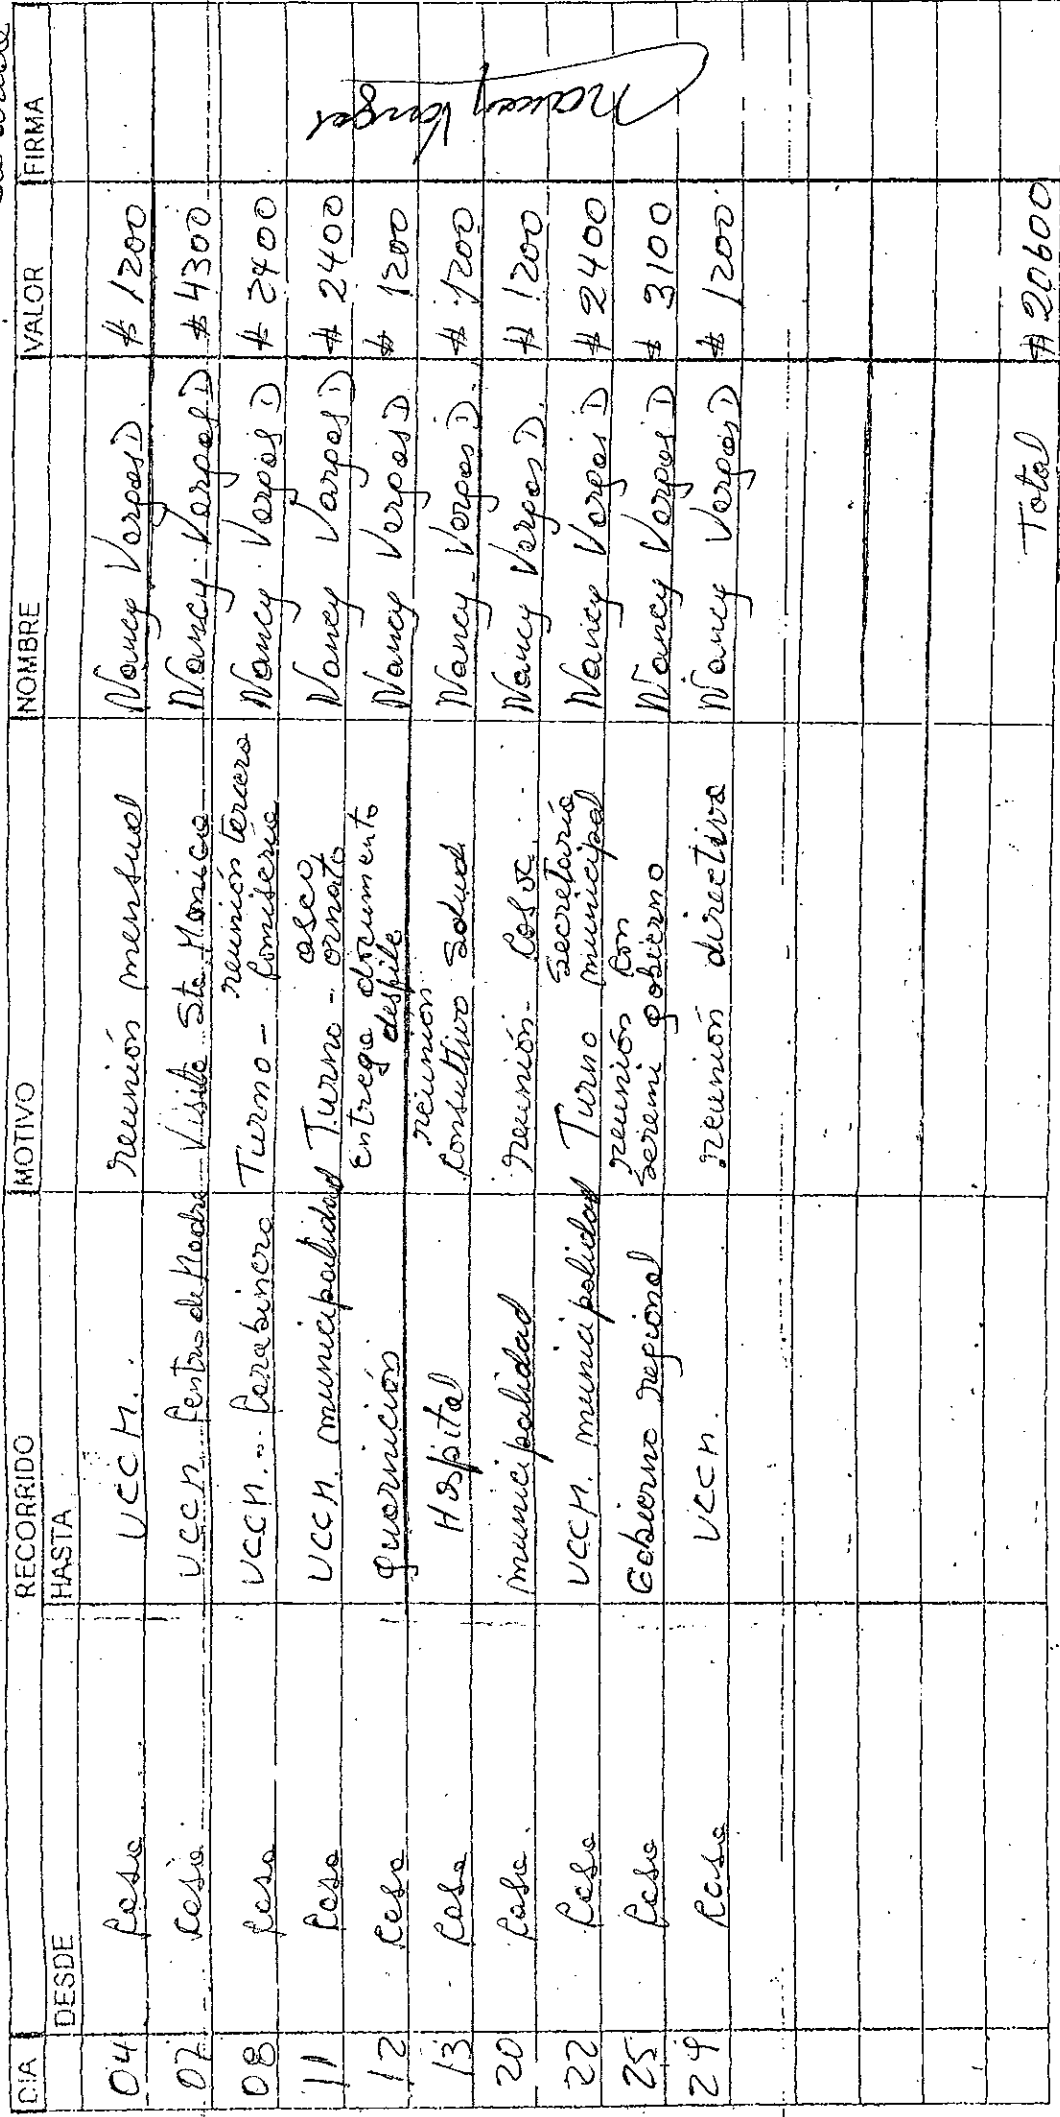 DIA RECORRIDO MOTIVO NOMBRE VALOR FIRMA
DESDE HASTA
04 Casa UCCM. reunión mensual Nancy Vargas D. $ 1200
07 casa UCCM Centro de Madre Visita Sta Monica Nancy Vargas D $ 4300
08 casa UCCM. - Carabinero Turno - reunión tercera Comisaria Nancy Vargas D $ 2400
11 Casa UCCM. municipalidad Turno - aseo ornato Nancy Vargas D $ 2400
12 casa Guarnición Entrega documento desfile Nancy Vargas D $ 1200
13 Casa Hospital reunión Consultivo Salud Nancy Vargas D. $ 1200
20 Casa. municipalidad reunión - Cosoc Nancy Vargas D. $ 1200
22 Casa UCCM. municipalidad Turno Secretaría municipal Nancy Vargas D $ 2400
25 Casa Gobierno regional reunión con Seremi gobierno Nancy Vargas D $ 3100
29 Casa UCCM. reunión directiva Nancy Vargas D $ 1200
Nancy Vargas
Total $ 20600